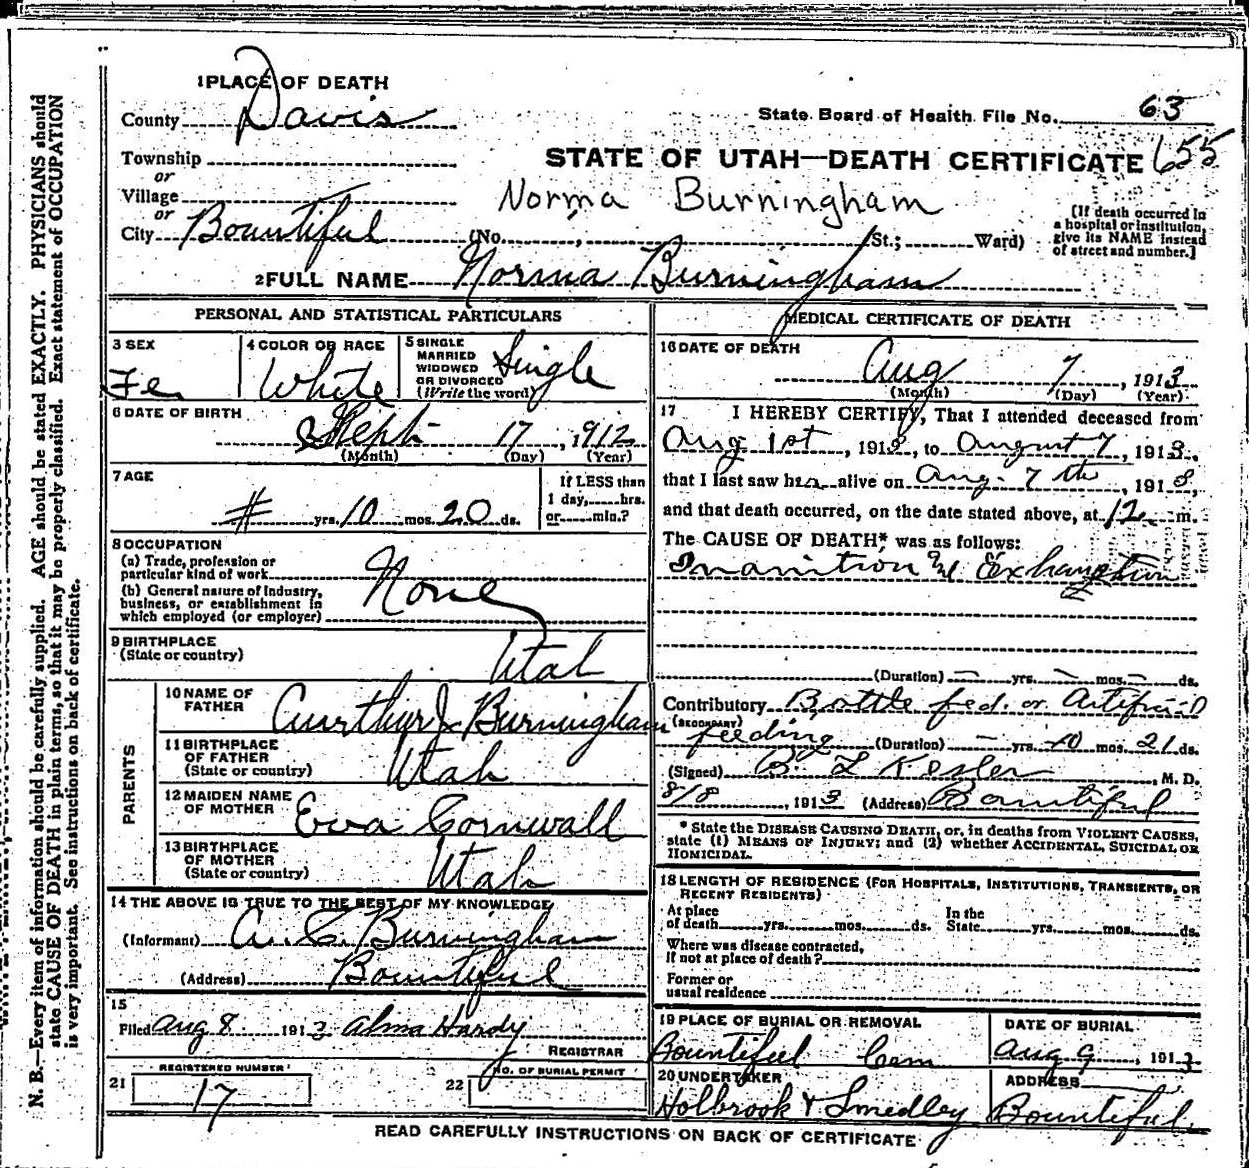 1 PLACE OF DEATH
County Davis
State Board of Health File No. 63
655
Township
or
Village
or
City Bountiful
STATE OF UTAH—DEATH CERTIFICATE
Norma Burningham
(No. , St.; Ward)
[If death occurred in a hospital or institution, give its NAME instead of street and number.]
2 FULL NAME Norma Burningham
PERSONAL AND STATISTICAL PARTICULARS
3 SEX
Fe
4 COLOR OR RACE
White
5 SINGLE
MARRIED
WIDOWED
OR DIVORCED
(Write the word)
Single
6 DATE OF BIRTH
Sept 17, 1912
(Month) (Day) (Year)
7 AGE
yrs. 10 mos. 20 ds.
If LESS than
1 day, hrs.
or min.?
8 OCCUPATION
(a) Trade, profession or
particular kind of work
(b) General nature of industry,
business, or establishment in
which employed (or employer)
None
9 BIRTHPLACE
(State or country)
Utah
PARENTS
10 NAME OF
FATHER
Aurthyr J. Burningham
11 BIRTHPLACE
OF FATHER
(State or country)
Utah
12 MAIDEN NAME
OF MOTHER
Eva Cornwall
13 BIRTHPLACE
OF MOTHER
(State or country)
Utah
14 THE ABOVE IS TRUE TO THE BEST OF MY KNOWLEDGE
(Informant) A. C. Burningham
(Address) Bountiful
15
Filed Aug 8 1913 Alma Hardy
REGISTRAR
REGISTERED NUMBER
21 17
22 NO. OF BURIAL PERMIT
MEDICAL CERTIFICATE OF DEATH
16 DATE OF DEATH
Aug 7, 1913
(Month) (Day) (Year)
17 I HEREBY CERTIFY, That I attended deceased from
Aug 1st, 1913, to August 7, 1913,
that I last saw her alive on Aug. 7th, 1913,
and that death occurred, on the date stated above, at 12 m.
The CAUSE OF DEATH* was as follows:
Inanition & Exhaustion
(Duration) — yrs. — mos. — ds.
Contributory Bottle fed. or Artificial
(SECONDARY)
feeding (Duration) — yrs. 10 mos. 21 ds.
(Signed) B. L. Kesler, M. D.
8/8, 1913 (Address) Bountiful
* State the DISEASE CAUSING DEATH, or, in deaths from VIOLENT CAUSES,
state (1) MEANS OF INJURY; and (2) whether ACCIDENTAL, SUICIDAL OR
HOMICIDAL.
18 LENGTH OF RESIDENCE (FOR HOSPITALS, INSTITUTIONS, TRANSIENTS, OR
RECENT RESIDENTS)
At place
of death yrs. mos. ds.
In the
State yrs. mos. ds.
Where was disease contracted,
if not at place of death?
Former or
usual residence
19 PLACE OF BURIAL OR REMOVAL
Bountiful Cem
DATE OF BURIAL
Aug 9, 1913
20 UNDERTAKER
Holbrook & Smedley
ADDRESS
Bountiful
READ CAREFULLY INSTRUCTIONS ON BACK OF CERTIFICATE
N. B.—Every item of information should be carefully supplied. AGE should be stated EXACTLY. PHYSICIANS should
state CAUSE OF DEATH in plain terms, so that it may be properly classified. Exact statement of OCCUPATION
is very important. See instructions on back of certificate.